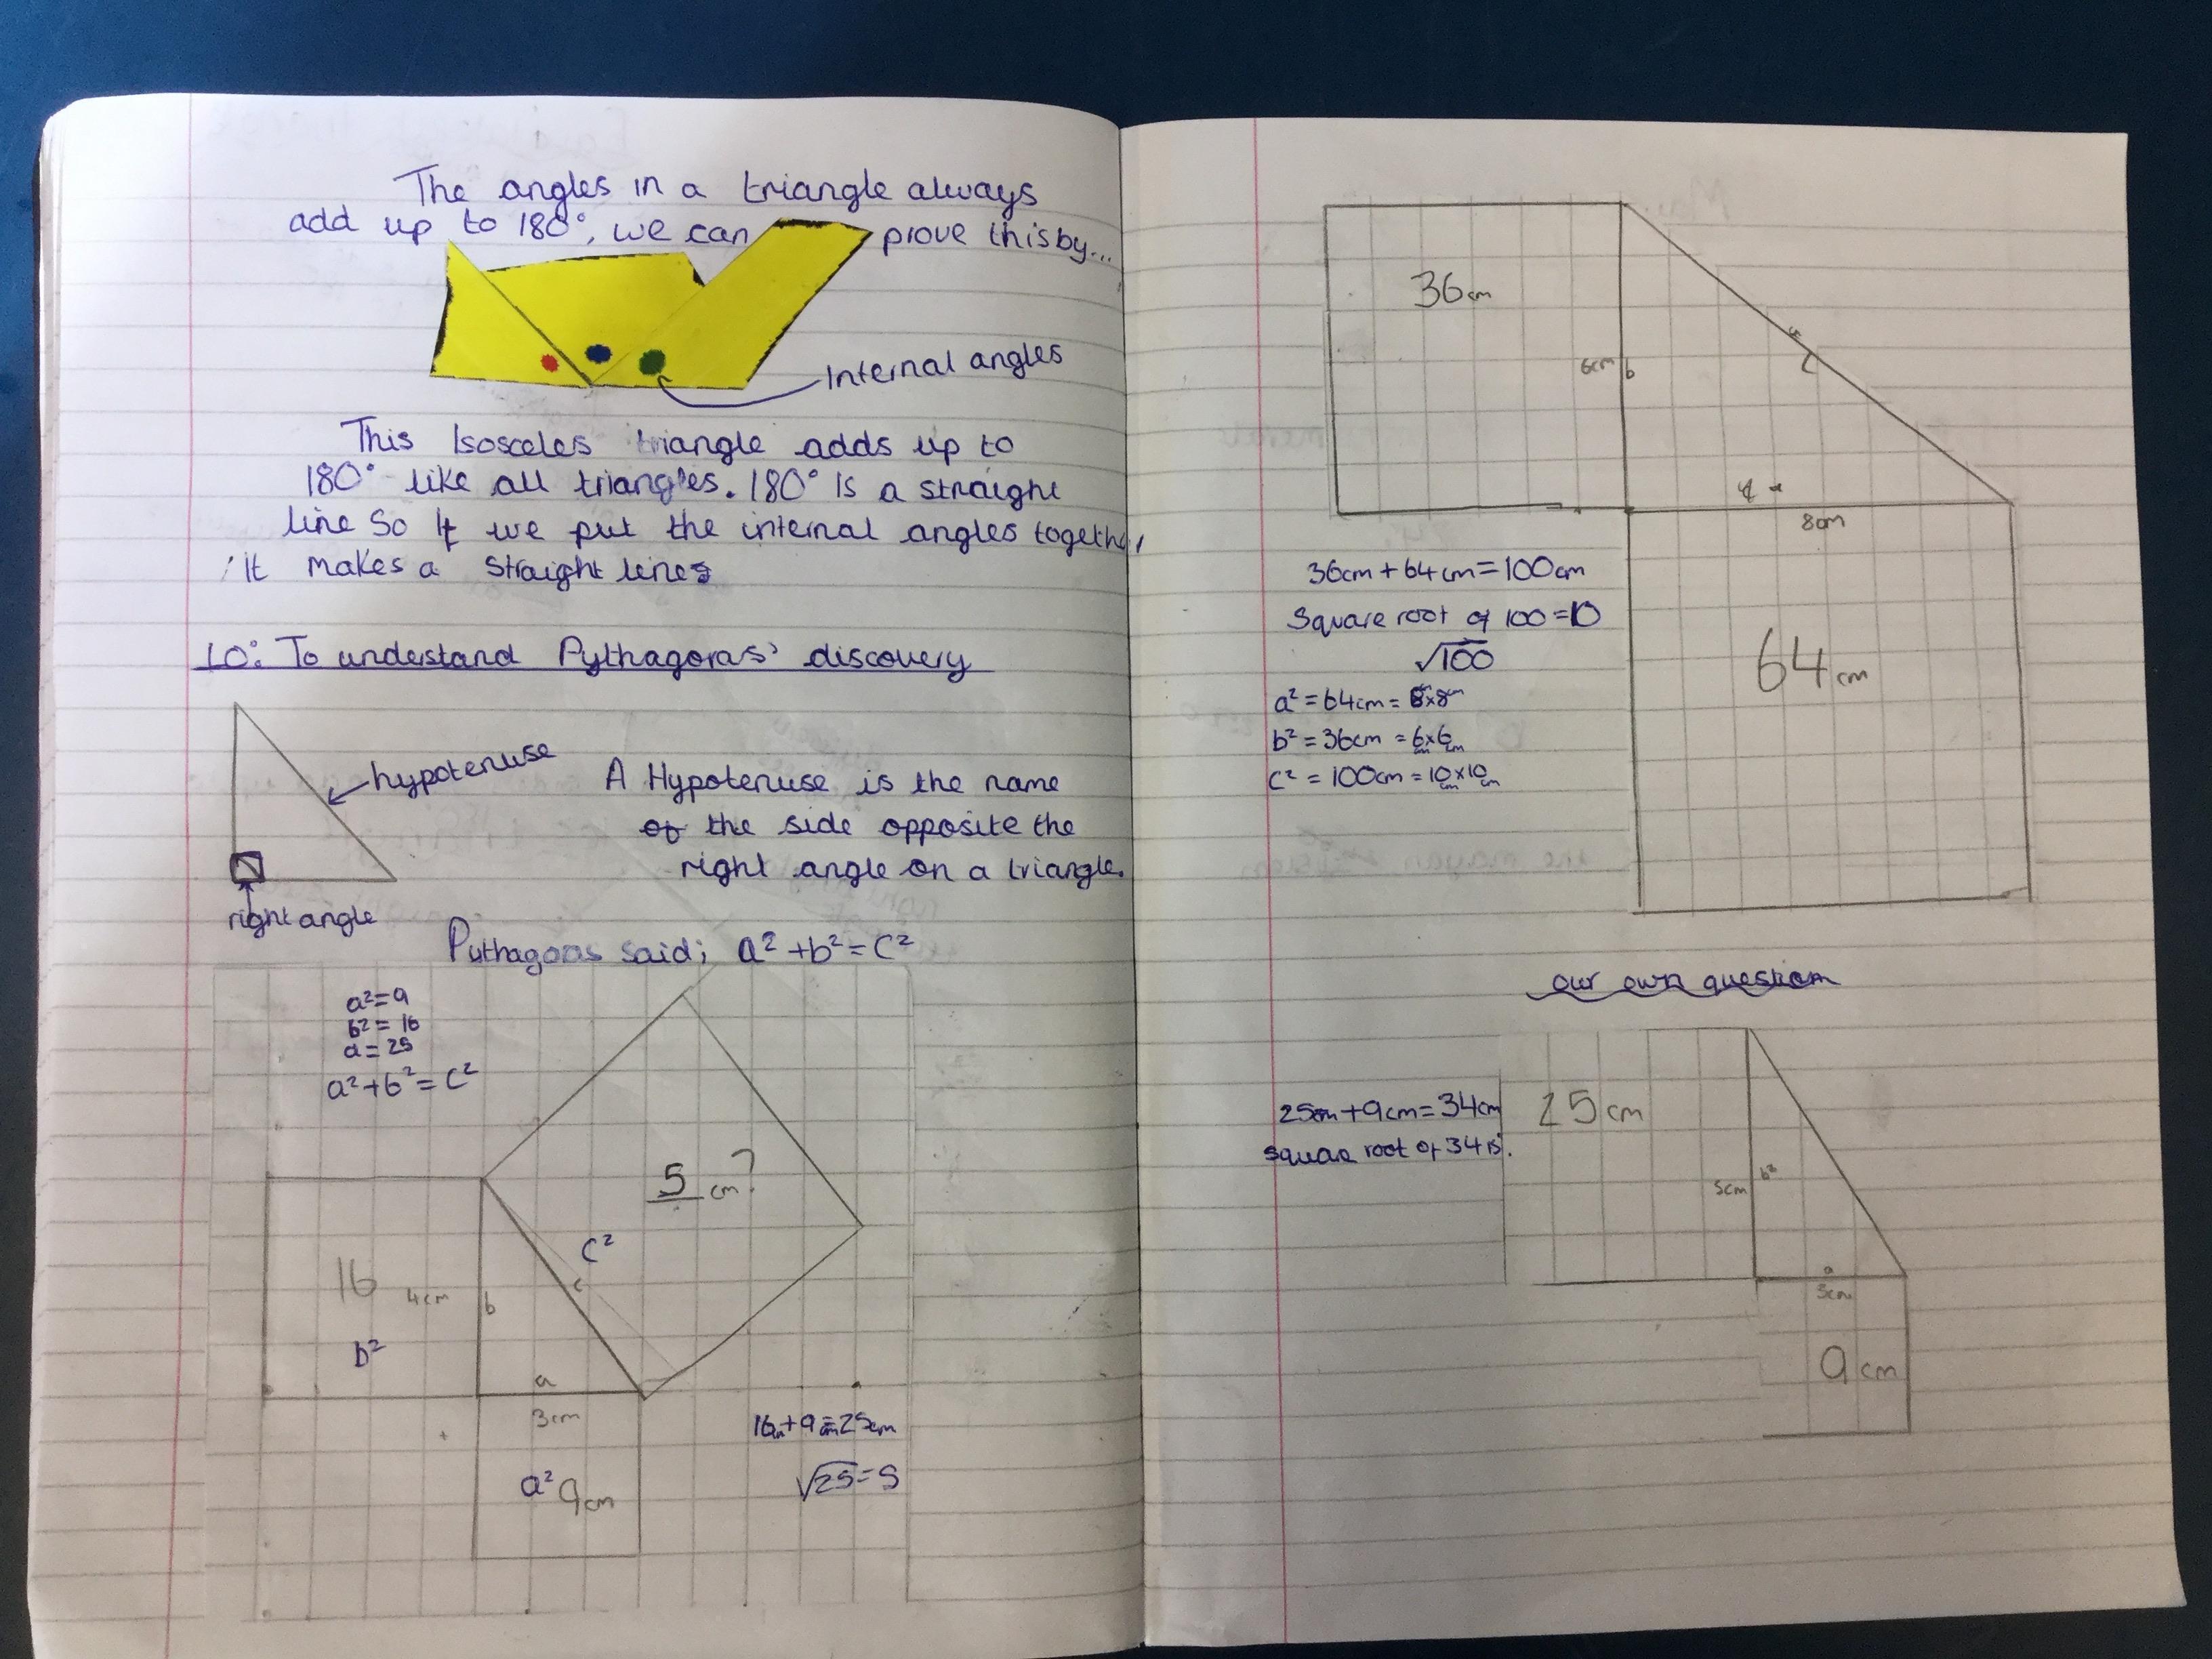 The angles in a triangle always
add up to 180°, we can prove this by...
Internal angles
This Isosceles triangle adds up to
180° like all triangles. 180° is a straight
line so if we put the internal angles together,
it makes a straight lines
LO: To undestand Pythagoras' discovery
hypotenuse
A Hypotenuse is the name
of the side opposite the
right angle on a triangle.
right angle
Puthagoras said; a²+b²=c²
a²=9
b²=16
a=25
a²+b²=c²
5 cm?
c²
c
16
4cm b
b²
a
3cm
a² 9cm
16cm+9cm=25cm
√25=5
36cm
6cm b
c
8cm
36cm+64cm=100cm
Square root of 100=10
√100
a²=64cm=8cm×8cm
b²=36cm=6cm×6cm
c²=100cm=10cm×10cm
64cm
our own question
25cm+9cm=34cm
square root of 34 is.
25cm
5cm b²
a
3cm
9cm